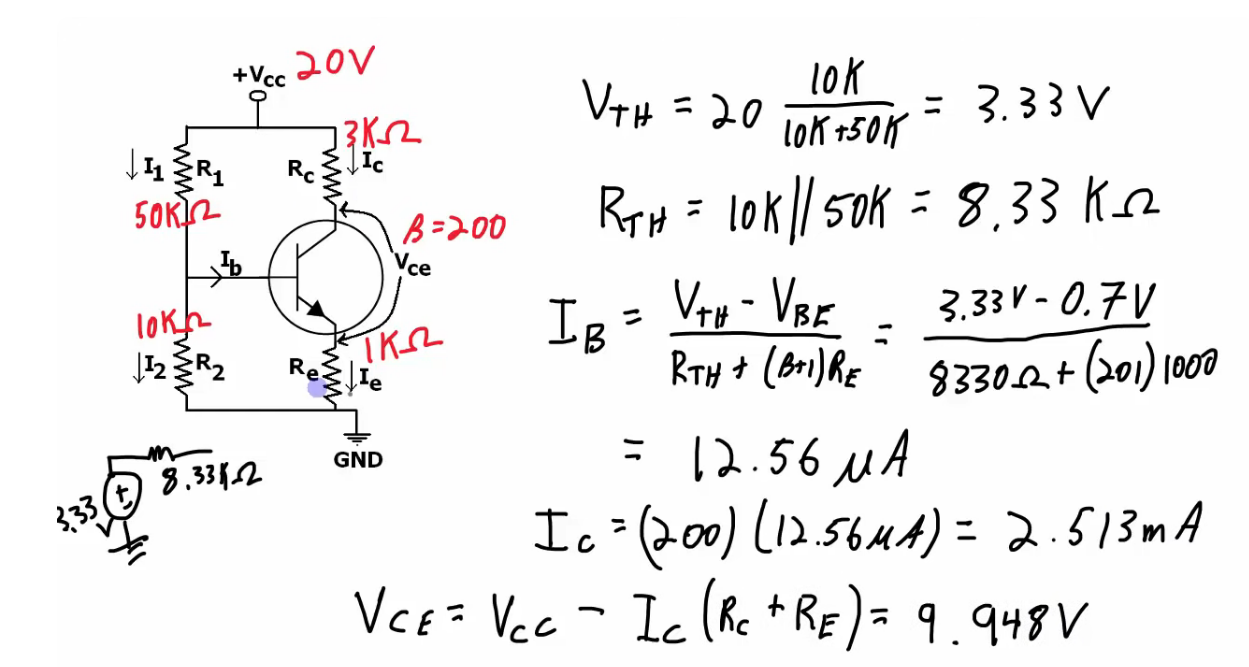 +Vcc 20V
3KΩ
↓ I1 R1 Rc ↓ Ic
50KΩ
β=200
Ib
Vce
10KΩ
1KΩ
↓ I2 R2 Re ↓ Ie
GND
8.33KΩ
3.33V
+
VTH = 20 10K / 10K+50K = 3.33V
RTH = 10K || 50K = 8.33 KΩ
IB = VTH - VBE / RTH + (β+1)RE = 3.33V - 0.7V / 8330Ω + (201)1000
= 12.56 μA
Ic = (200)(12.56μA) = 2.513mA
VCE = VCC - Ic (Rc + RE) = 9.948V